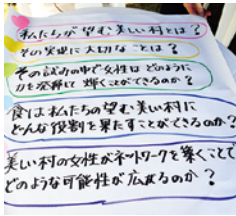 私たちが望む美しい村とは?
その実現に大切なことは?
その試みの中で女性はどのように
力を発揮して輝くことができるのか?
食は私たちの望む美しい村に
どんな役割を果たすことができるのか?
美しい村の女性がネットワークを築くことで
どのような可能性が広がるのか?